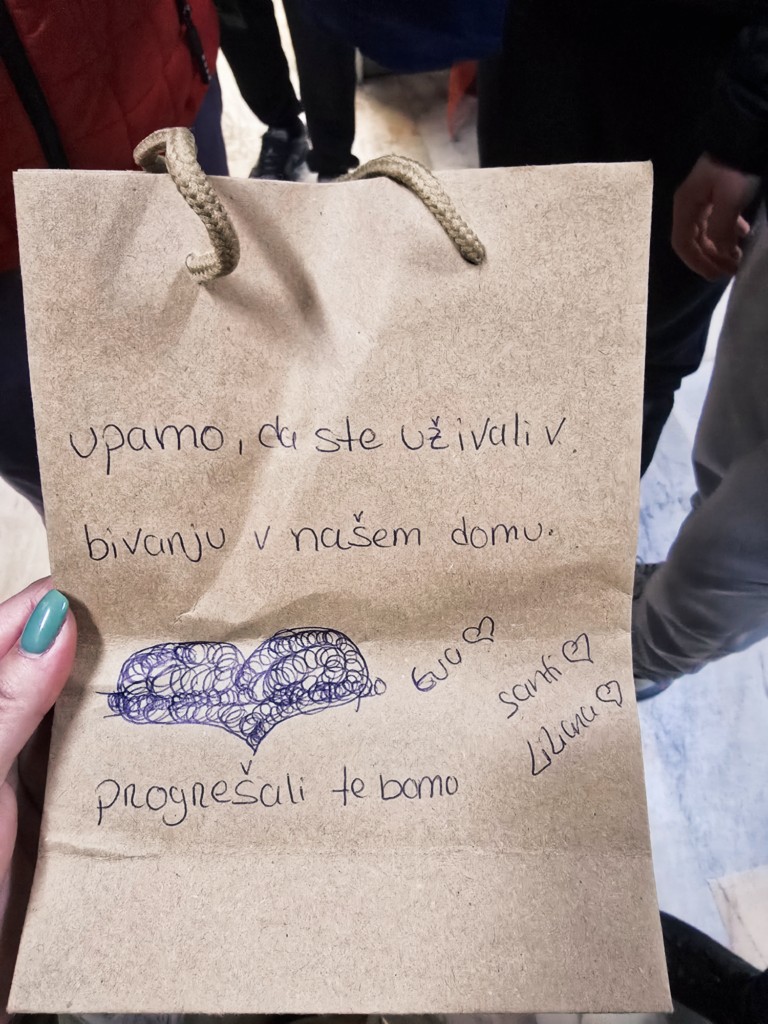 upamo, da ste uživali v
bivanju v našem domu.
Eva
Santi
Liliana
progrešali te bomo